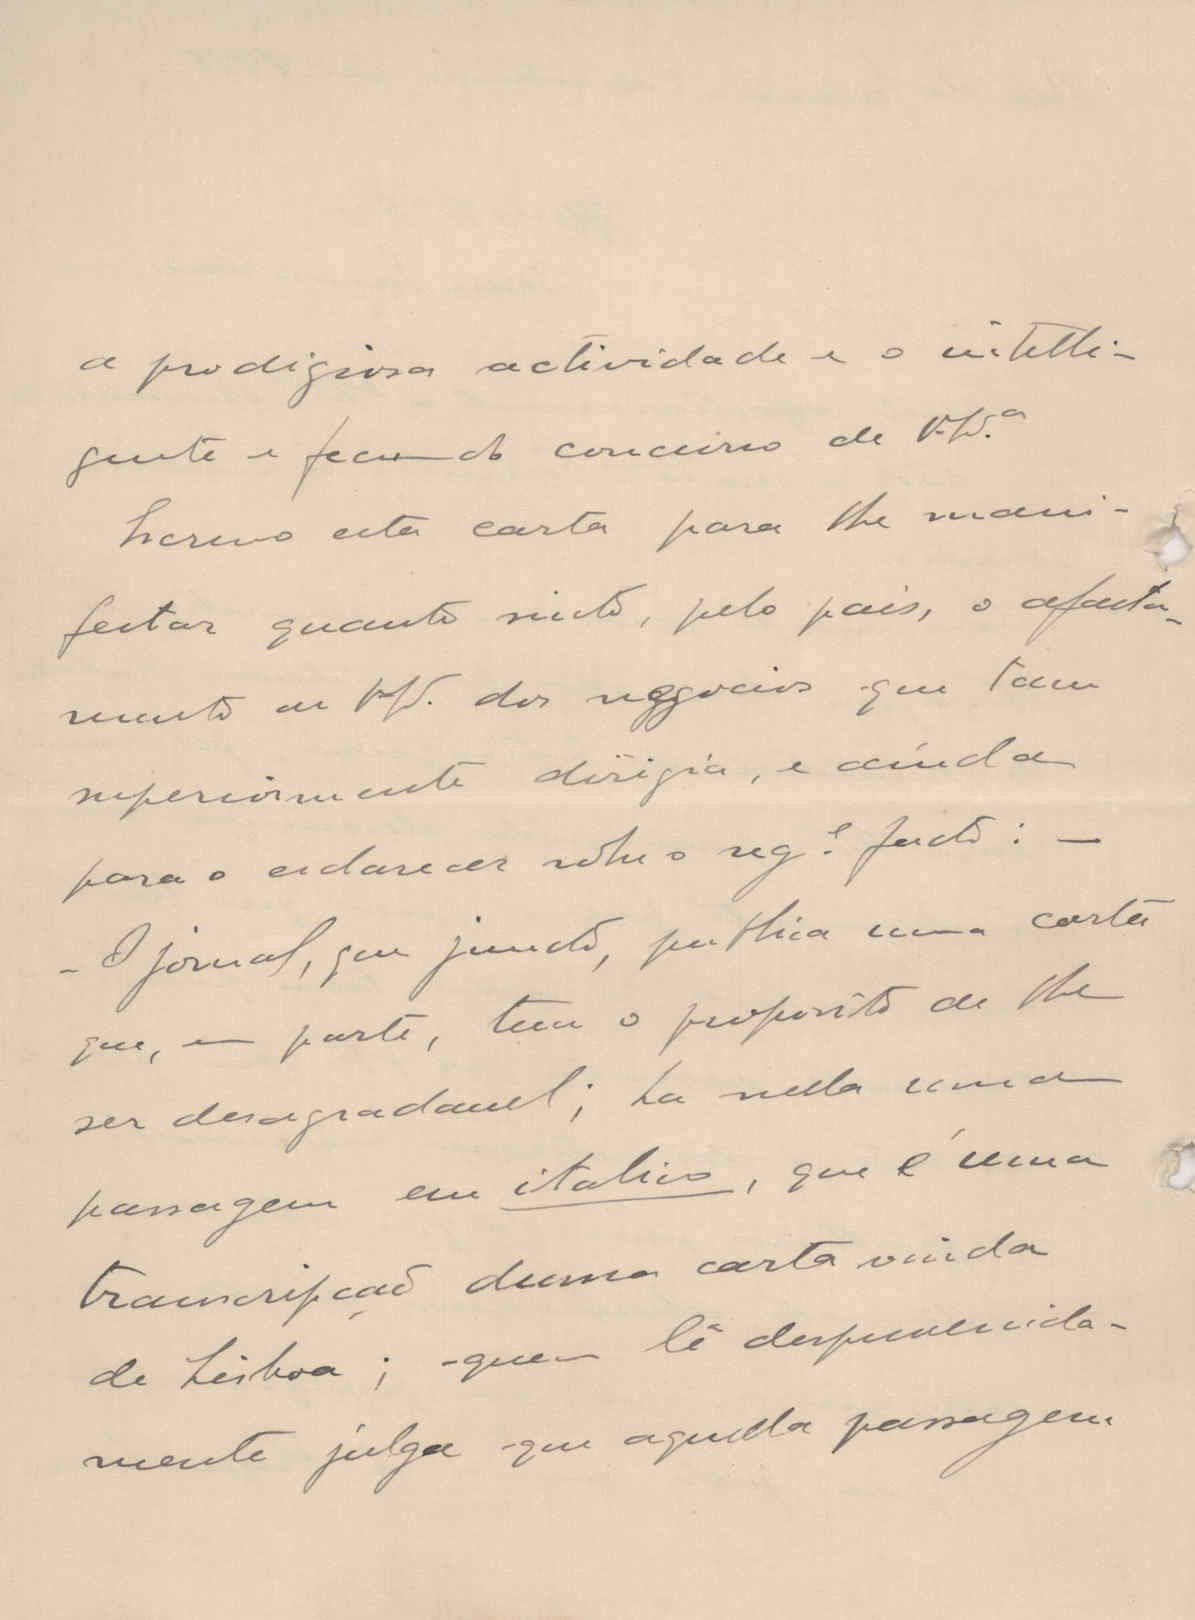 a prodigiosa actividade e o intelli-
gente e fecundo concurso de V. Ex.ª
Escrevo esta carta para lhe mani-
festar quanto sinto, pelo pais, o afasta-
mento de V. Ex. dos negocios que tam
superiormente dirigia, e ainda
para o esclarecer sobre o seg.e facto: —
- O jornal, que junto, publica uma carta
que, em parte, tem o proposito de lhe
ser desagradavel; ha nella uma
passagem em italico, que é uma
transcripção duma carta vinda
de Lisboa; quem lê desprevenida-
mente julga que aquella passagem